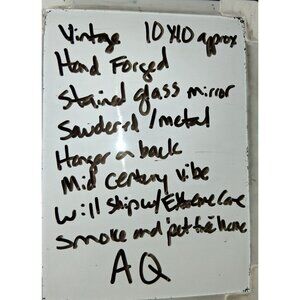 Vintage 10x10 approx
Hand Forged
Stained glass mirror
Sawderrd / metal
Hanger on back
Mid century vibe
Will ship w/ Extreme Care
smoke and pet free home
AQ